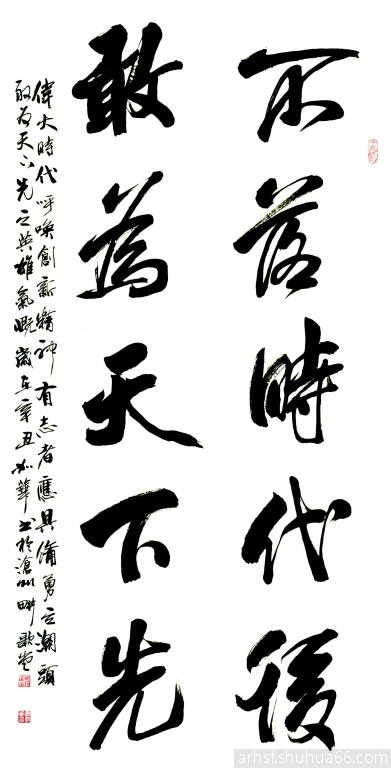 不落時代後
敢為天下先
偉大時代呼喚創新精神有志者應具備勇立潮頭
敢為天下先之英雄氣慨歲在辛丑 華書於滄州畊歌堂
arhsf.shuhua66.com